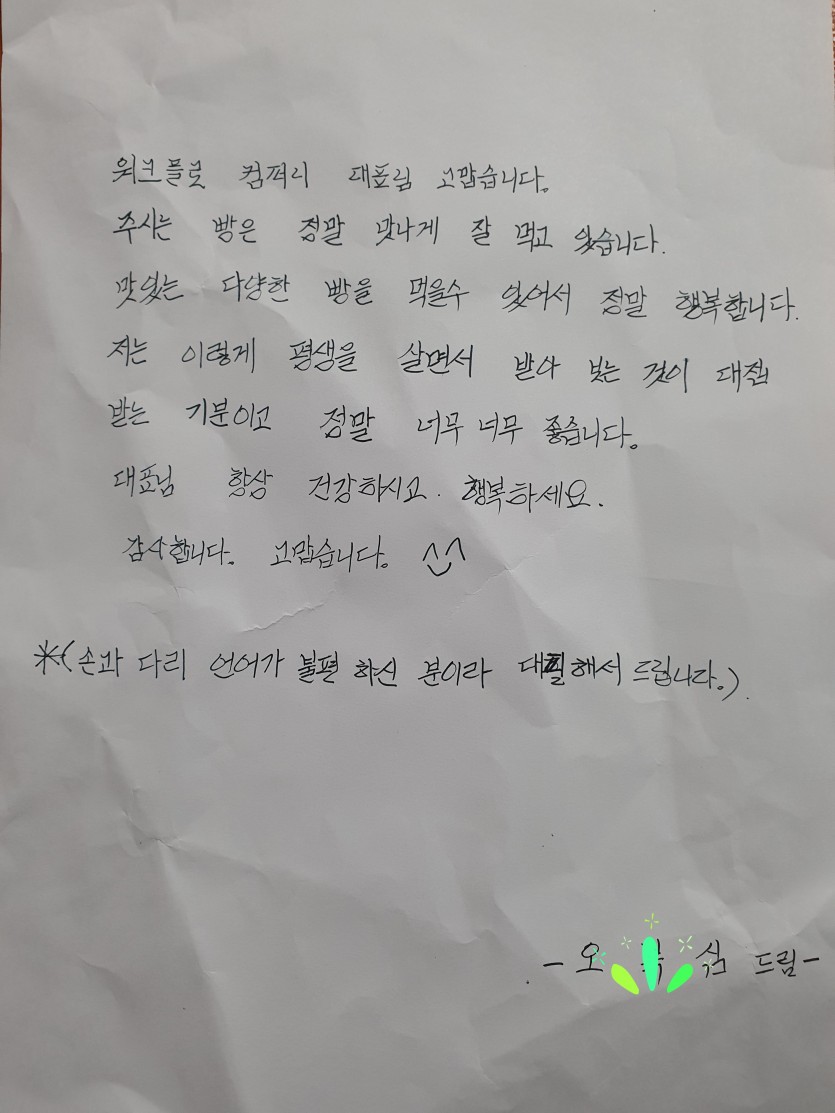 워크플로 컴퍼니 대표님 고맙습니다.
주시는 빵은 정말 맛나게 잘 먹고 있습니다.
맛있는 다양한 빵을 먹을수 있어서 정말 행복합니다.
저는 이렇게 평생을 살면서 받아 보는 것이 대접
받는 기분이고 정말 너무 너무 좋습니다.
대표님 항상 건강하시고. 행복하세요.
감사합니다. 고맙습니다. ^^
*(손과 다리 언어가 불편 하신 분이라 대필해서 드립니다.).
- 오 심 드림-